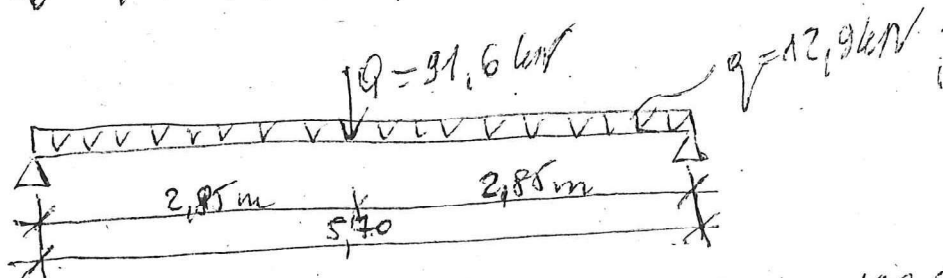 Q = 91,6 kN
q = 12,9 kN
2,85 m 2,85 m
5,70